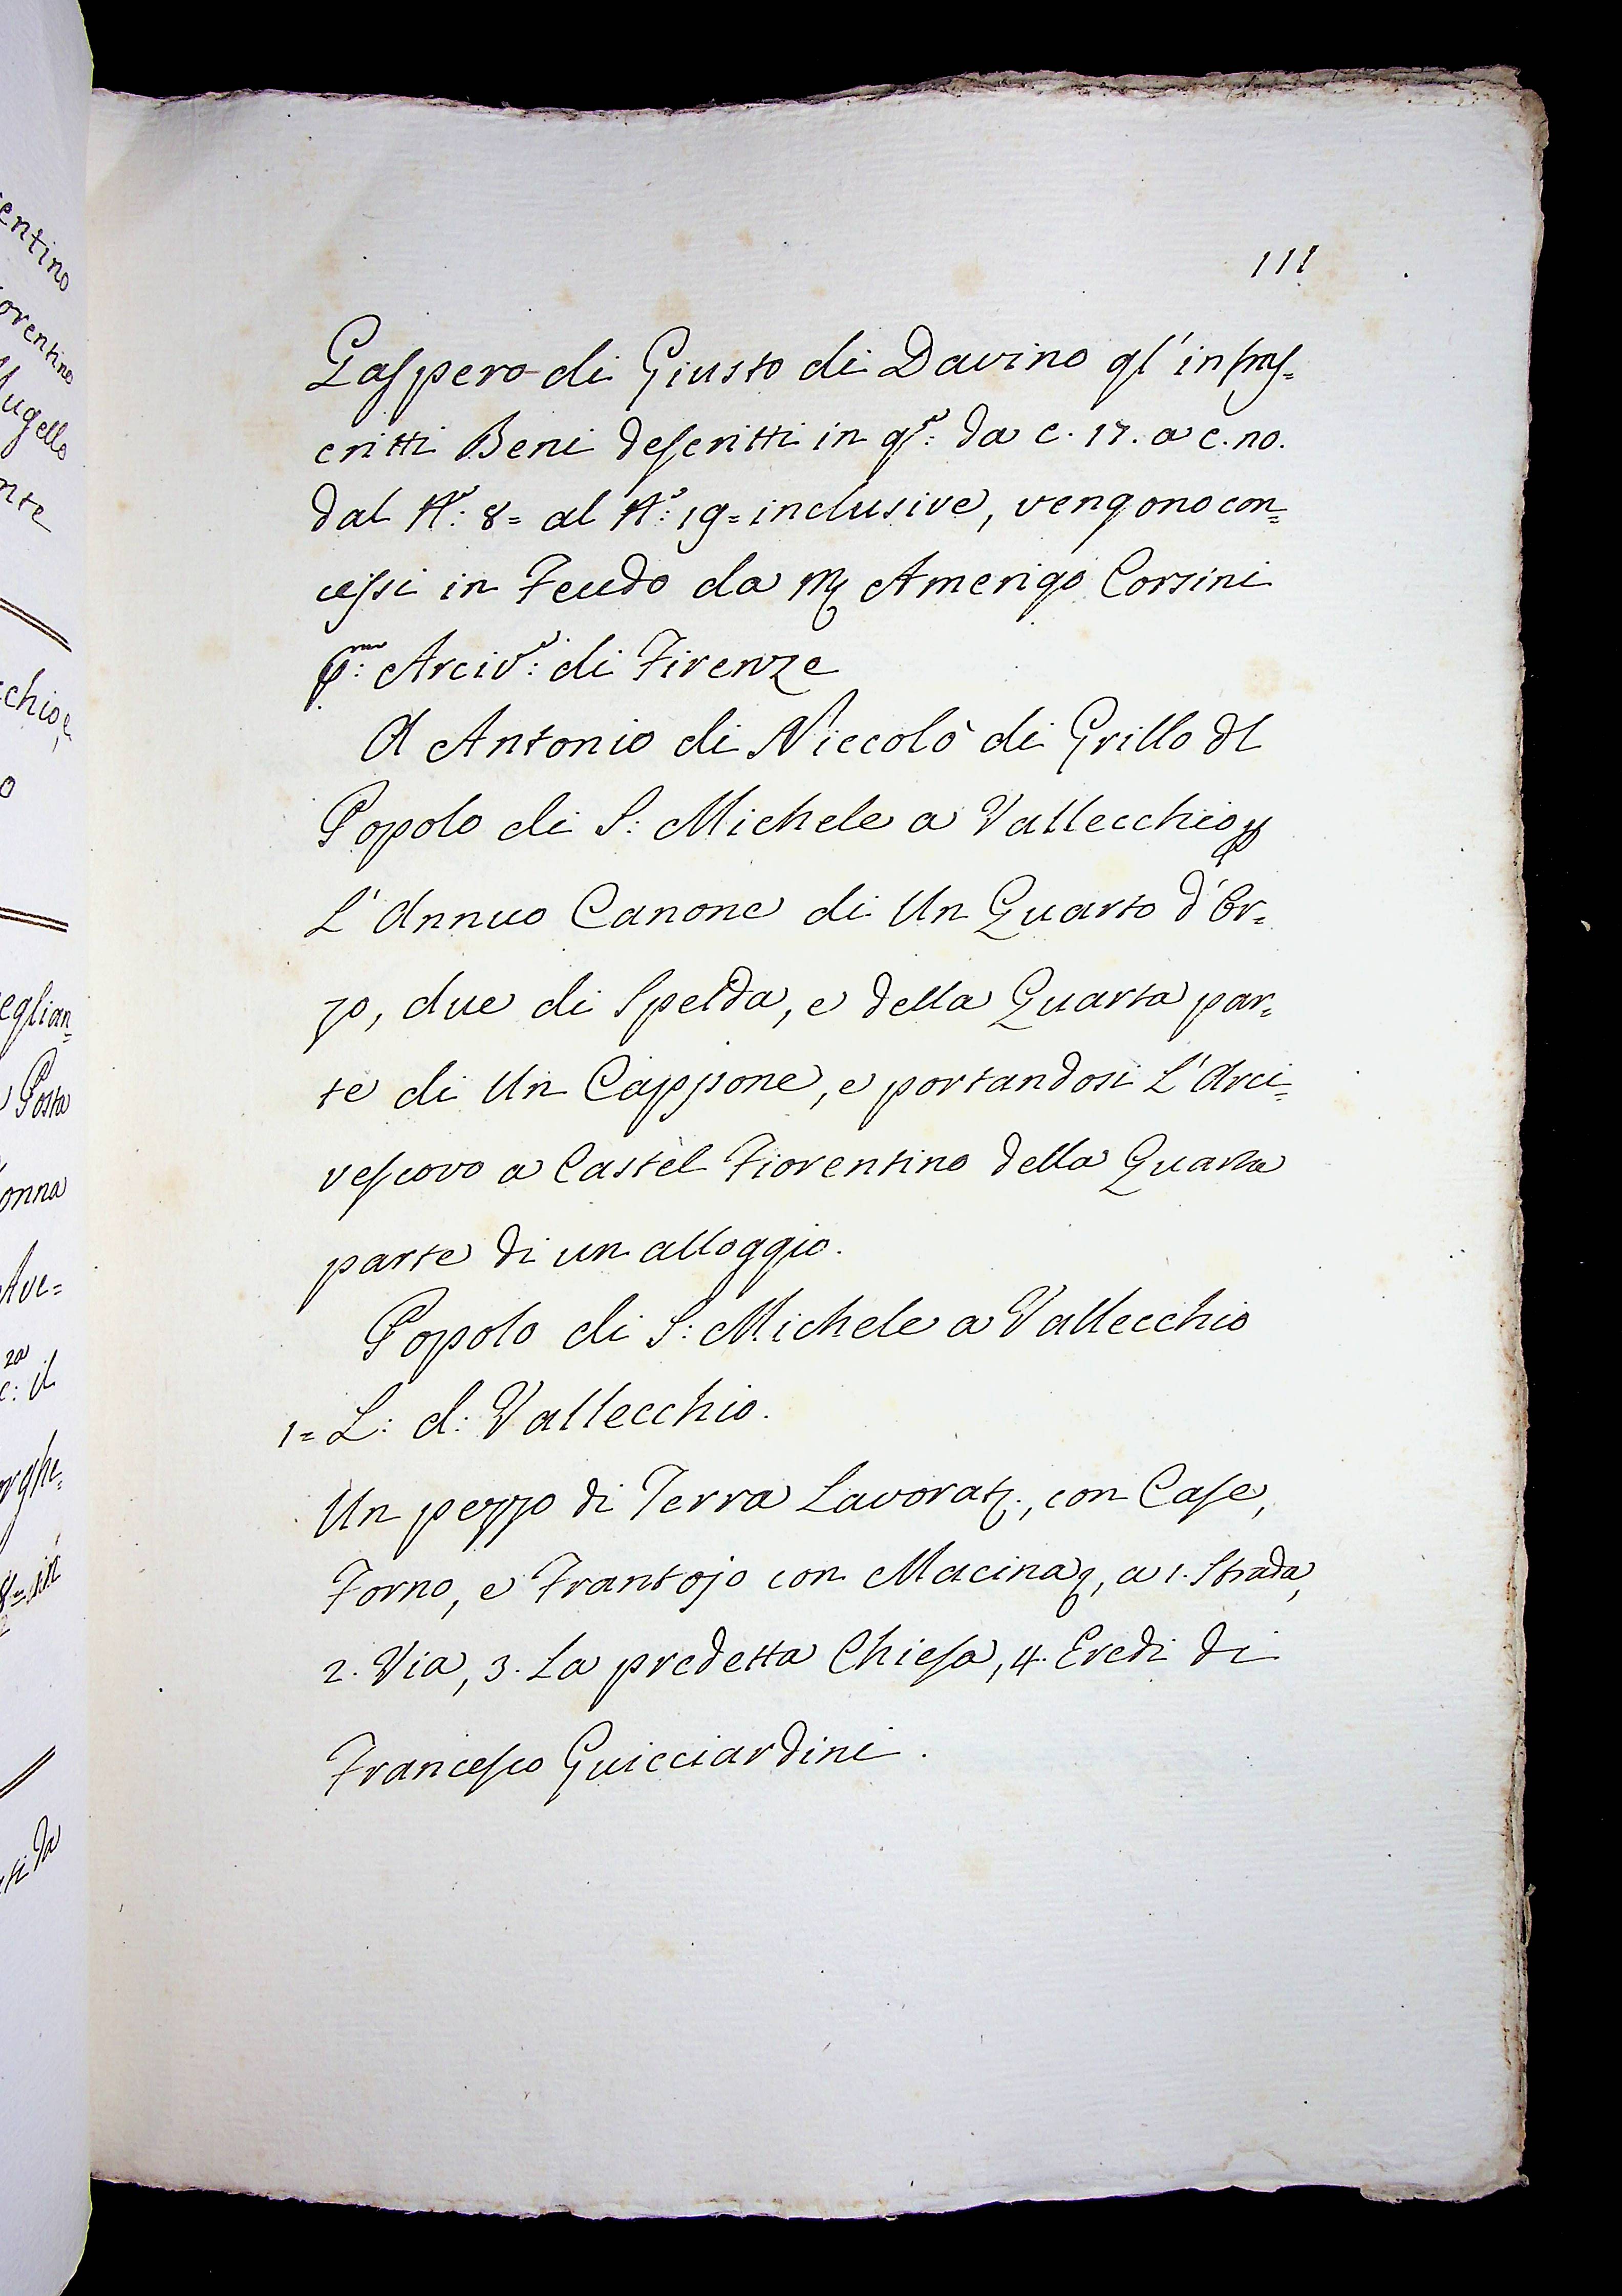 111
Gaspero di Giusto di Davino gl' infras=
critti Beni descritti in qs.º: da c. 17. a c. 20.
dal Nº: 8= al Nº: 19= inclusive, vengono con=
cessi in Feudo da M. Amerigo Corsini
Pmo: Arcivº: di Firenze
A Antonio di Niccolò di Grillo dl
Popolo di S: Michele a Vallecchio p
L'Annuo Canone di Un Quarto d'Or=
zo, due di Spelda, e della Quarta par=
te di Un Cappone, e portandosi L'Arci=
vescovo a Castel Fiorentino della Quarta
parte di un alloggio.
Popolo di S: Michele a Vallecchio
1= L: d: Vallecchio.
Un pezzo di Terra Lavorat., con Case,
Forno, e Frantojo con Macina, a 1. Strada,
2. Via, 3. La predetta Chiesa, 4. Eredi di
Francesco Guicciardini.